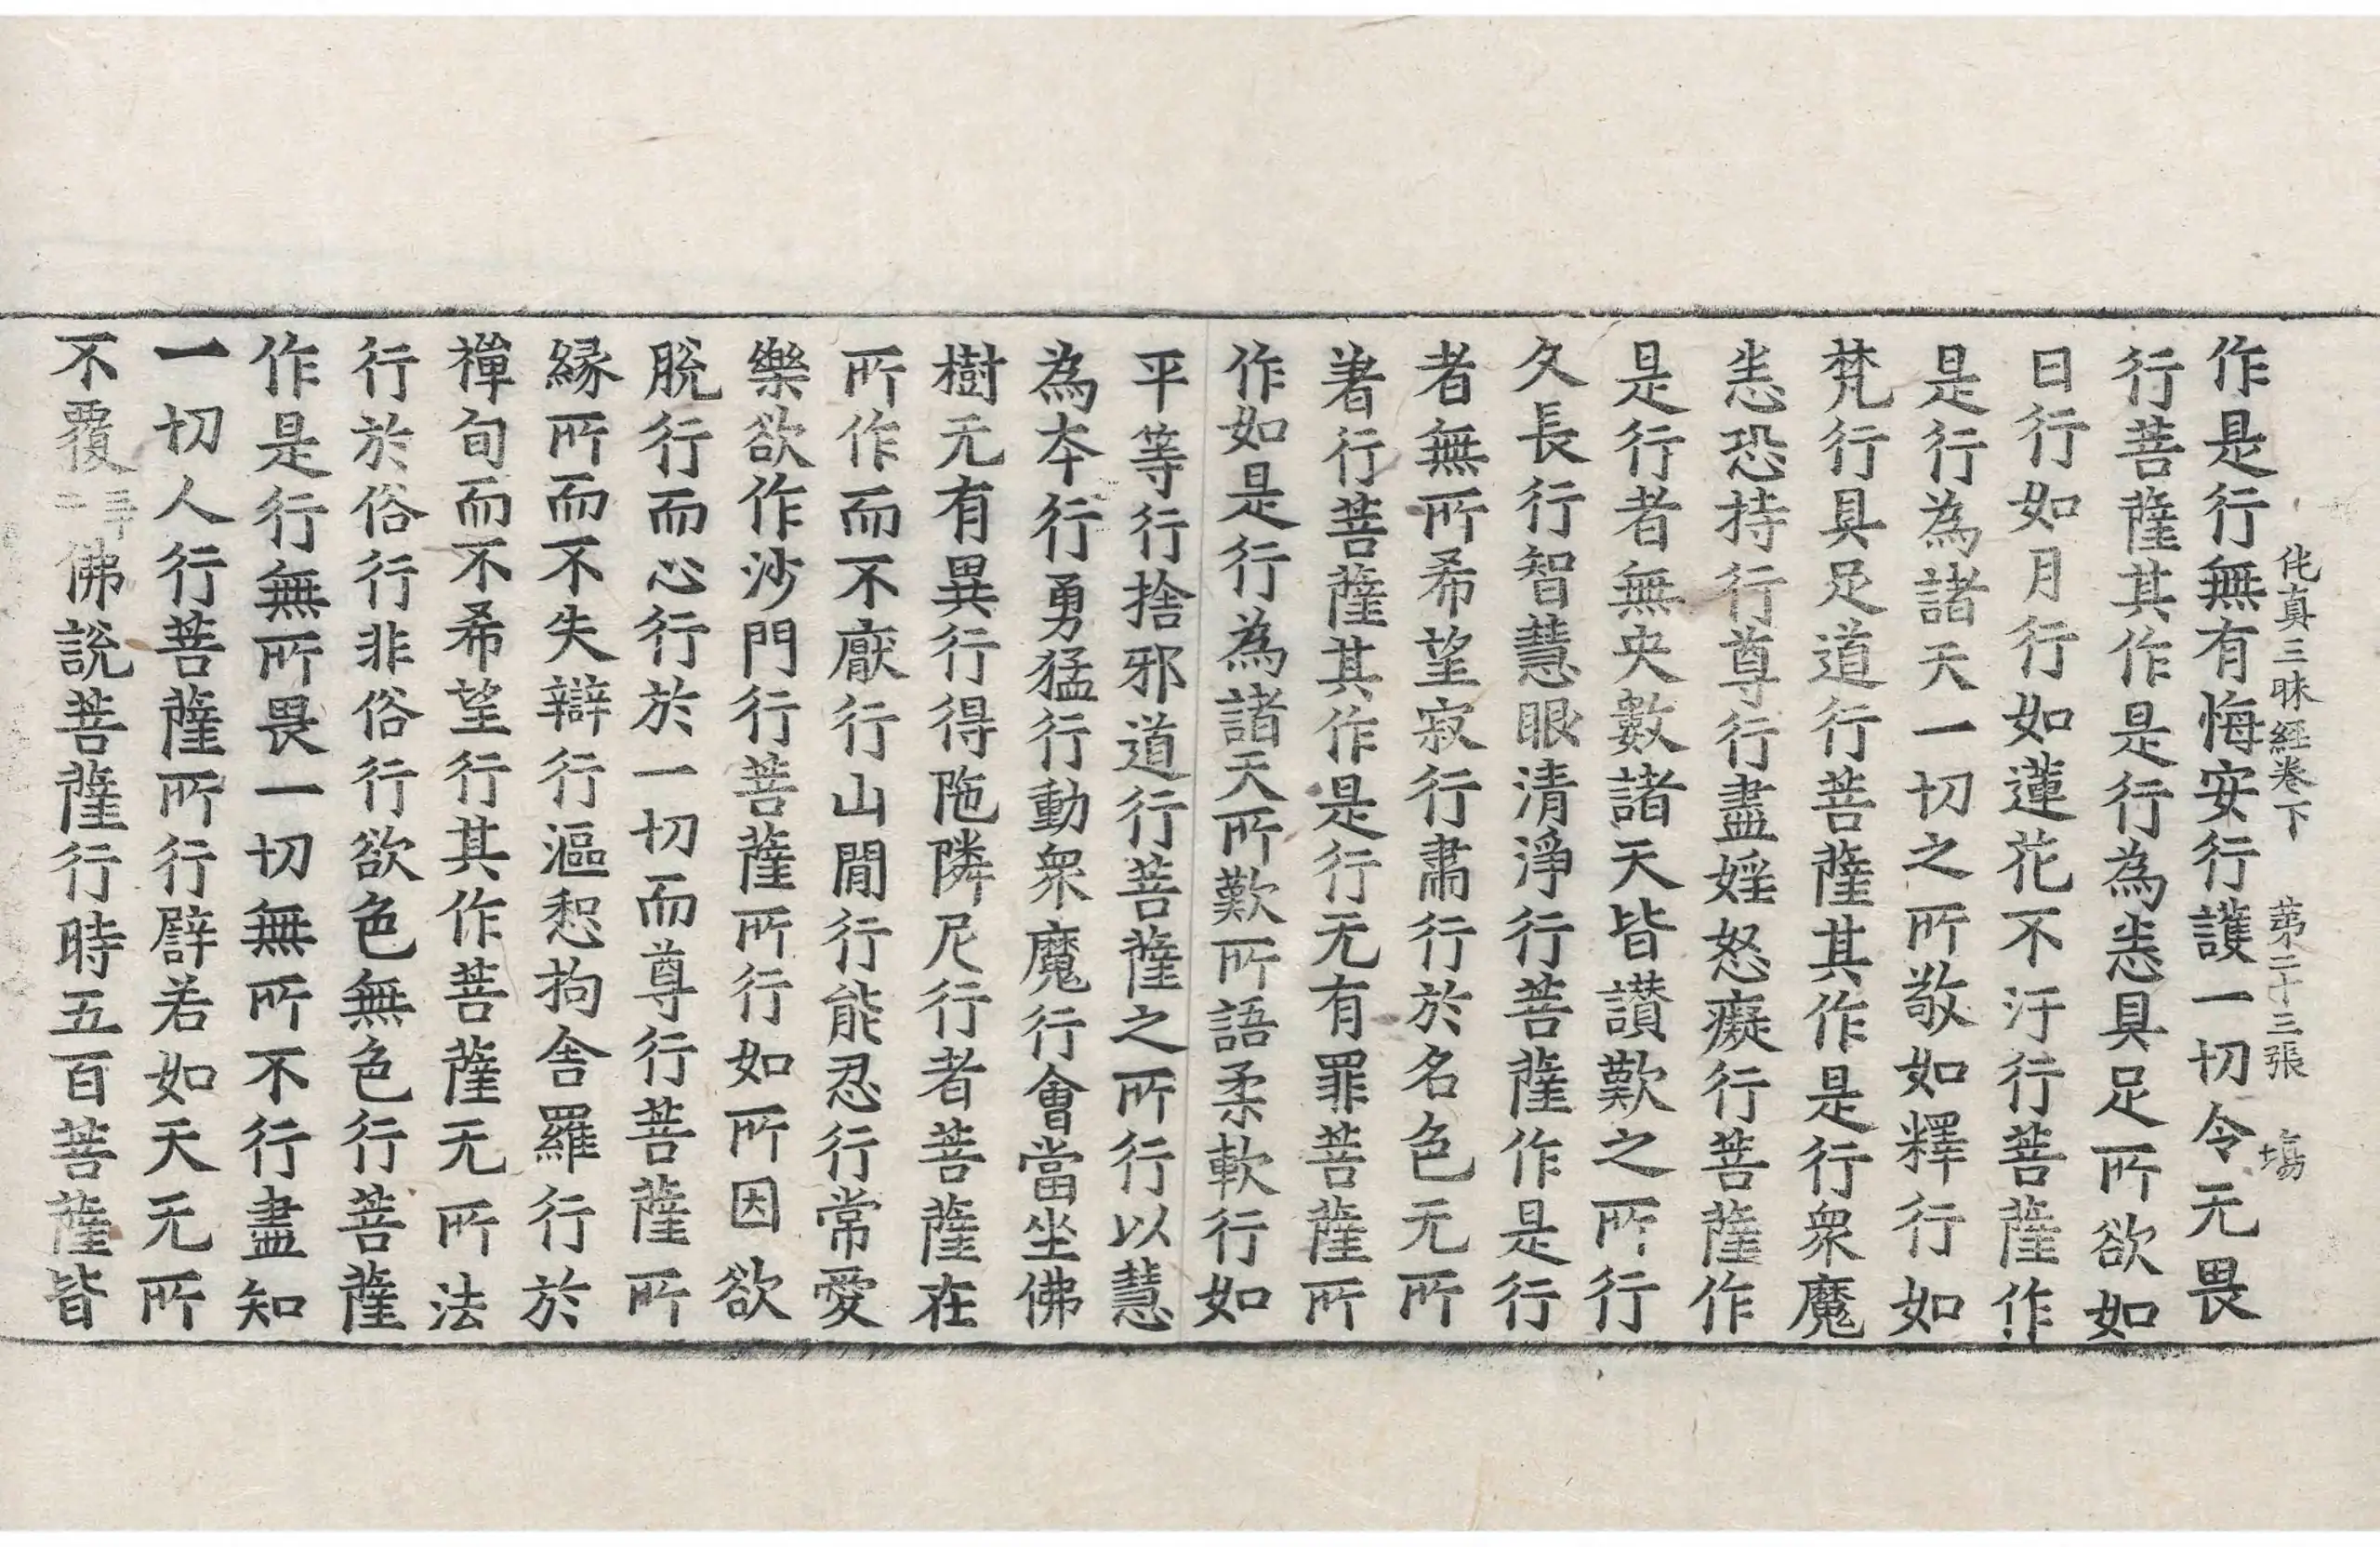 佗真三昧經卷下　第二十三張　塲
作是行無有悔安行護一切令无畏
行菩薩其作是行為恙具足所欲如
日行如月行如蓮花不汙行菩薩作
是行為諸天一切之所敬如釋行如
梵行具足道行菩薩其作是行衆魔
恙恐持行尊行盡婬怒癡行菩薩作
是行者無央數諸天皆讃歎之所行
久長行智慧眼清淨行菩薩作是行
者無所希望寂行肅行於名色无所
著行菩薩其作是行无有罪菩薩所
作如是行為諸天所歎所語柔軟行如
平等行捨邪道行菩薩之所行以慧
為本行勇猛行動衆魔行會當坐佛
樹无有異行得陁隣尼行者菩薩在
所作而不厭行山間行能忍行常愛
樂欲作沙門行菩薩所行如所因欲
脫行而心行於一切而尊行菩薩所
緣所而不失辯行漚惒拘舍羅行於
禪旬而不希望行其作菩薩无所法
行於俗行非俗行欲色無色行菩薩
作是行無所畏一切無所不行盡知
一切人行菩薩所行辟若如天无所
不覆三十二佛說菩薩行時五百菩薩皆